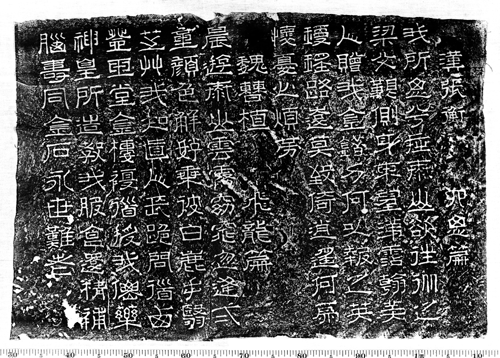 漢張衡 四思篇
我所思兮在泰山欲往從之
梁父艱側身東望涕霑翰美
人贈我金錯刀何以報之英
瓊瑤路遠莫致倚逍遙何為
懷憂心煩勞
魏曹植 飛龍篇
晨遊泰山雲霧窈窕忽逢二
童顏色鮮好乘彼白鹿手翳
芝艸我知真人長跪問道西
登玉堂金樓複道授我僊藥
神皇所造教我服食還精補
腦壽同金石永世難老